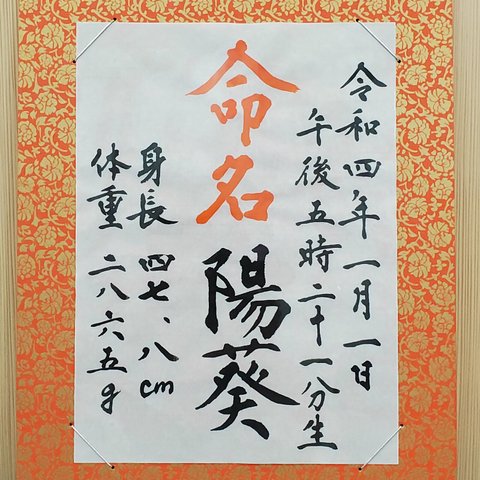 令和四年一月一日
午後五時二十一分生
命名 陽葵
身長 四七、八cm
体重 二八六五g